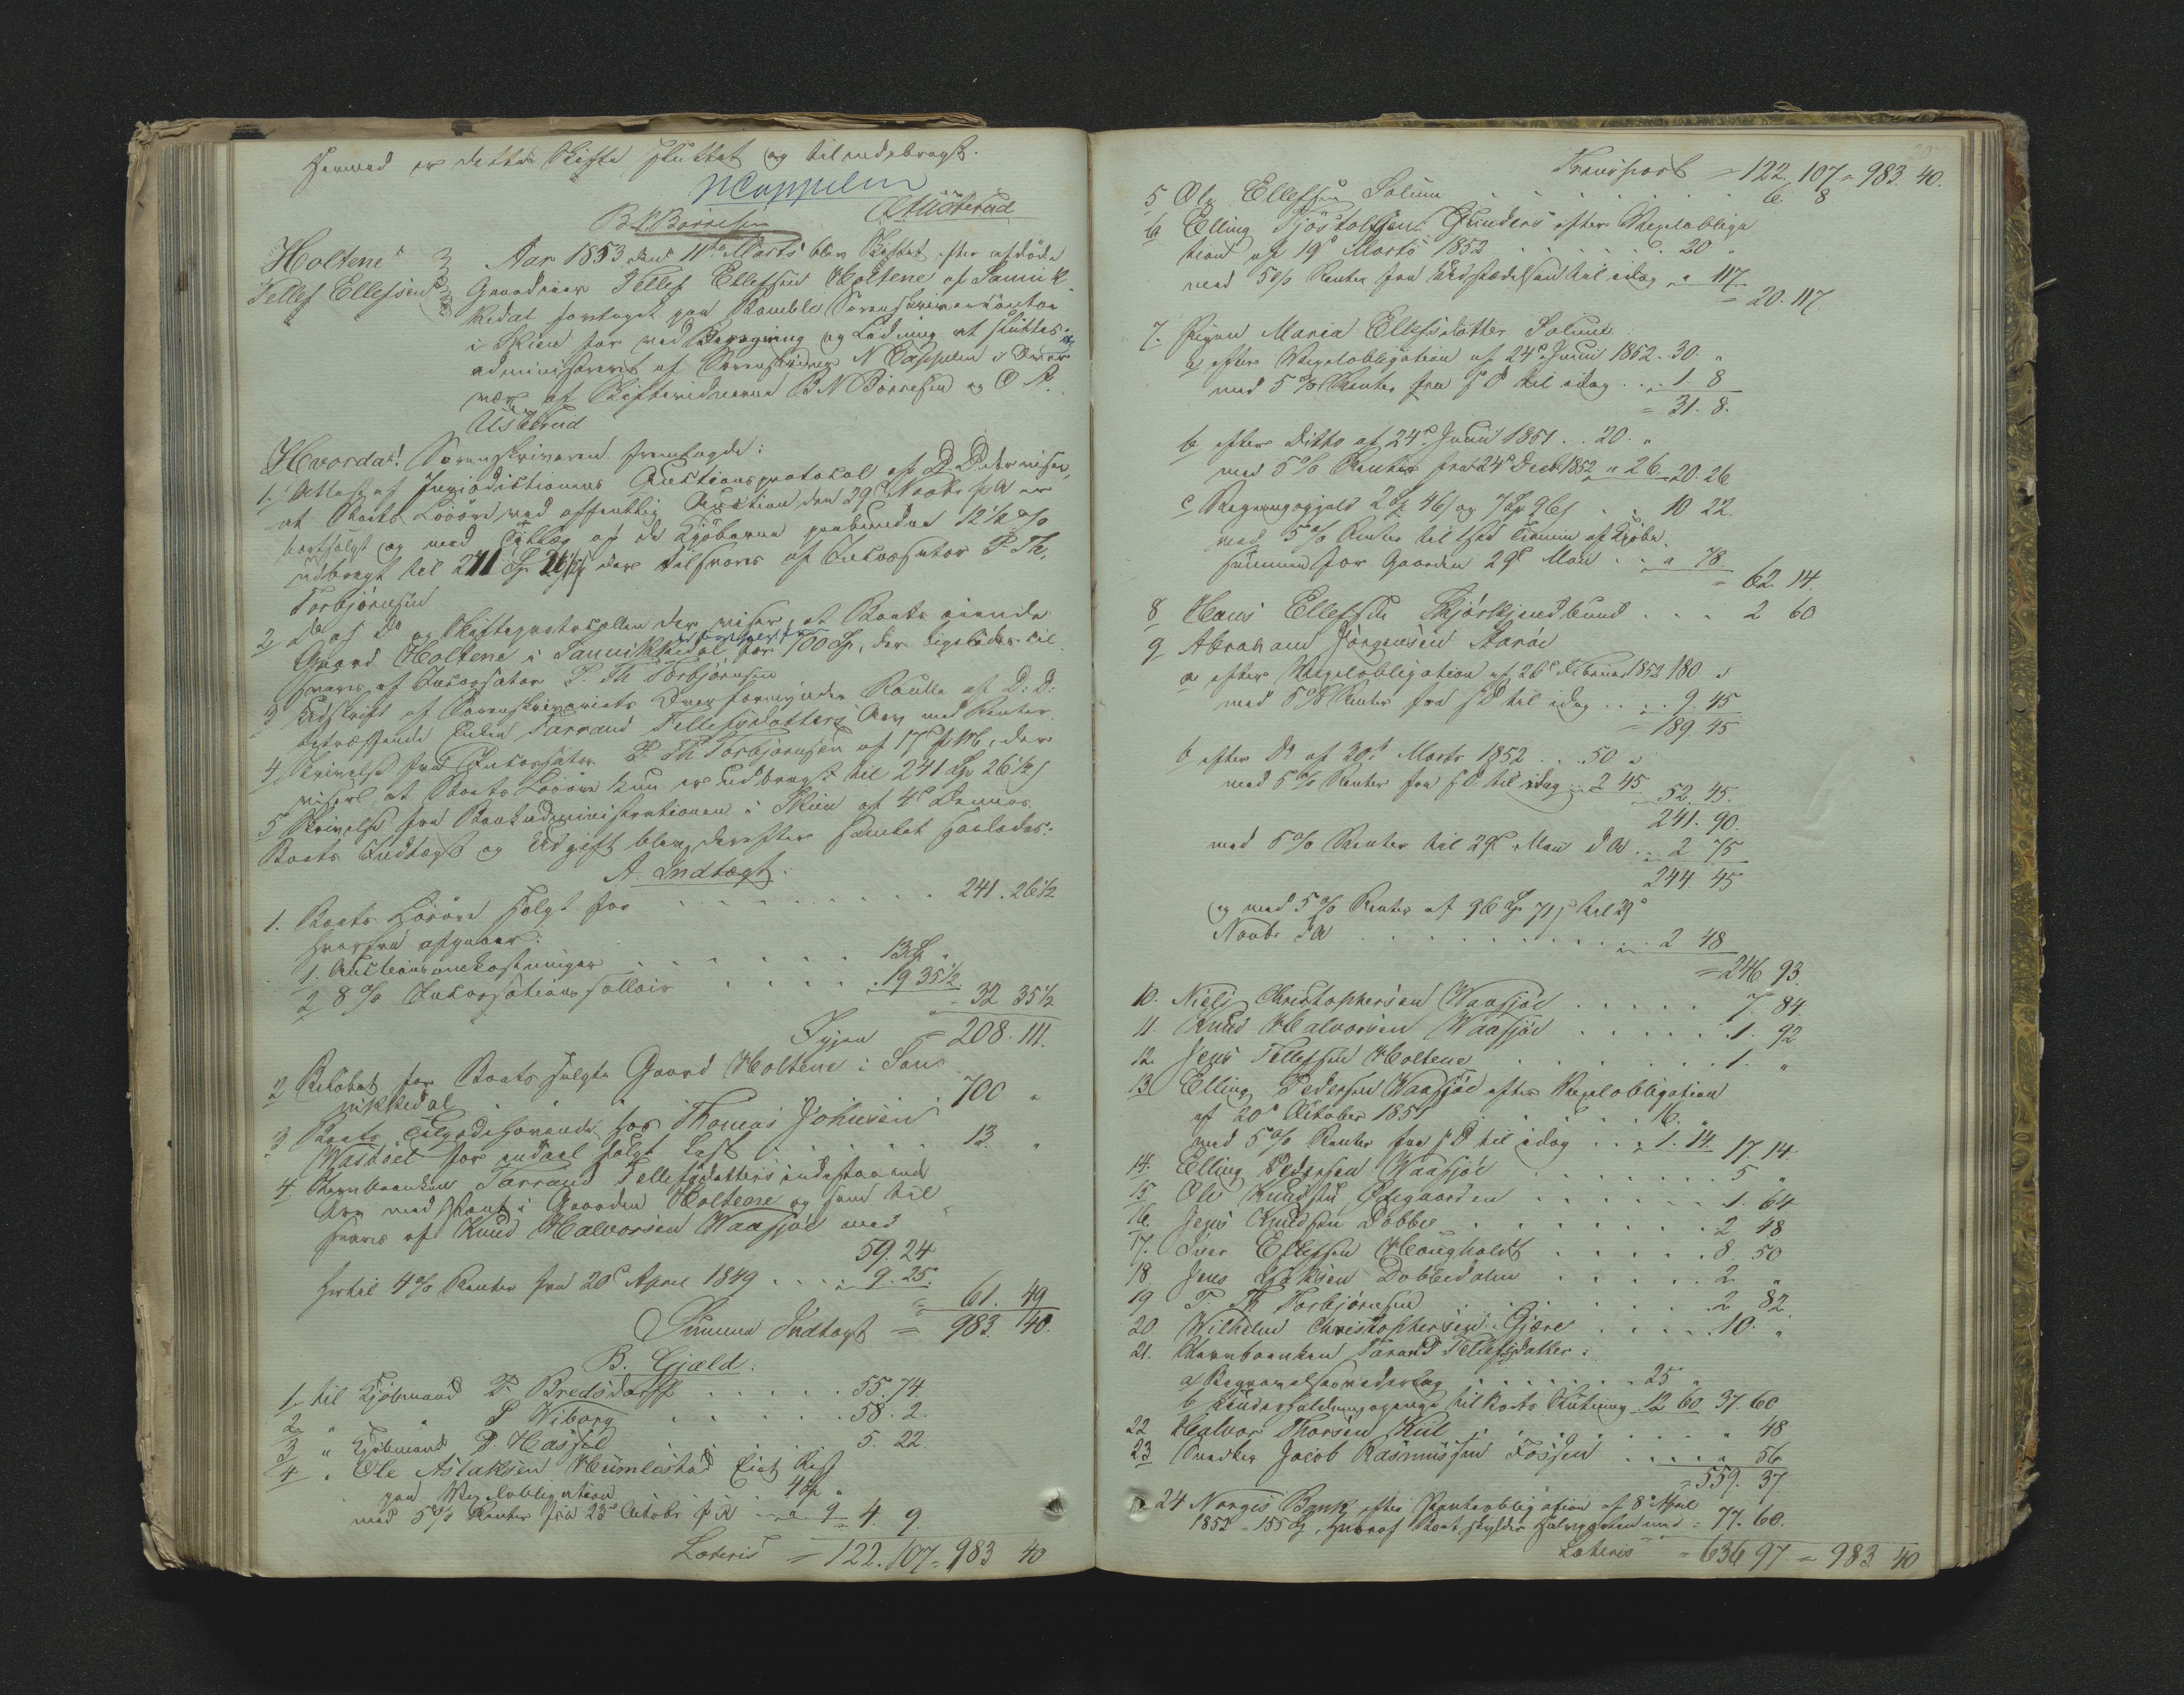 Hermed er dette Skifte sluttet og tilendebragt.
NCappelen
B. N. Börresen
OAUsterud
Holtene
Tellef Ellefsen
Aar 1853 den 11te Marts blev Skiftet efter afdöde
Gaardeier Tellef Ellefsen Holtene af Sannik-
kedal foretaget paa Bamble Sorenskrivercontor
i Skien for ved Beregning og Lodning at sluttes
administreret af Sorenskriver N Cappelen i Over-
vær af Skiftevidnerne B N Börresen og O A
Usterud
Hvorda! Sorenskriveren fremlagde:
1. Attest af Jurisdictionens Auctionsprotokol af D. D. der viser,
at Boets Lösöre ved offentlig Auction den 29d Novbr f. A. er
bortsolgt og med Tillæg af de Kjöberne paabundne 12½ %
udbragt til 241 Sp 26½ s der tilsvares af Inkassator P. Th.
Torbjörnsen
2. do af Do og Skifteprotokollen der viser, at Boets eiende
Gaard Holtene i Sannikkedal er bortsolgt for 700 Sp, der ligeledes til-
svares af Inkassator P. Th Torbjörnsen
3 Udskrift af Sorenskriveriets Overformynder Roulle af D: D:
betræffende Enken Tarrand Tellefsdatters Arv med Renter.
4 Skrivelse fra Inkassator P. Th Torbjörnsen af 17d f. M., der
viser, at Boets Lösöre kun er udbragt til 241 Sp 26½ s
5 Skrivelse fra Bankadministrationen i Skien af 4d Dennes
Boets Indtægt og Udgift blev derefter samlet saaledes:
A. Indtægt.
1. Boets Lösöre solgt for . . . . . . . . . 241. 26½
hvorfra afgaaer:
1. Auctionsomkostninger . . . . . . 13 Sp "
2 8 % Inkassations sallair . . . . . 19 35½
32 35½
Igjen = 208. 111.
2 Beløbet for Boets solgte Gaard Holtene i San-
nikkedal . . . . . . . . 700 "
3 Boets Tilgodehavende hos Thomas Johnsen
Wasböet for endeel solgt Last . . . . 13. "
4. Barnbarnken Tarrand Tellefsdatters indestaaende
Arv med Pant i Gaarden Holtene og som til-
svares af Knud Halvorsen Waasjöe med
59. 24
hertil 4 % Renter fra 20d April 1849 . . . 9. 25.
61. 49
Summa Indtægt = 983. 40.
B. Gjæld:
1. til Kjöbmand P. Bredsdorff . . . . . 55. 74.
2 " " S Wiborg . . . . . 58. 2.
3 " Kjöbmand P. Hassel . . . . 5. 22.
4 . Ole Aslaksen Humlestad Eiet Rest
paa Vexelobligation 4 Sp "
med 5 % Renter fra 23d Octobr f A " 9 = 4. 9.
Lateris = 122. 107 = 983 40
Transport = 122. 107 = 983. 40.
5 Ole Ellefsen Solum . . . . . . 6. 8
6 Elling Tjöstolfsen Gunders efter Vexelobliga-
tion af 19d Marts 1852 . . . . . 20 "
med 5 % Renter fra Udstædelsen til idag " 117.
= 20. 117.
7. Pigen Maria Ellefsdatter Solum:
a efter Vexelobligation af 24d Juni 1852. 30. "
med 5 % Renter fra s D til idag . . 1. 8
= 31. 8.
b efter Ditto af 24d Juni 1851 . . 20. "
med 5 % Renter fra 24d Decb 1852 " 26. 20. 26
c . . 10 22.
med 5 % Renter til
Summen for Gaarden 29d Mai . . " 78.
= 62. 14.
8 Hans Ellefsen . . . 2 60
9 Abraham Jörgensen Aaröe
a efter Vexelobligation af 26d Februar 1852 180 "
med 5 % Renter fra s D til idag . . . 9. 45
= 189 45
b efter Do af 30d Marts 1852 . . . 50 "
med 5 % Renter fra s D til idag . . 2 45
52. 45.
241. 90.
med 5 % Renter til 29d Mai d A . . 2 75
244 45
og med 5 % Renter af 96 Sp 71 s til 29d
Novbr d A . . . . . . . . . 2 48
= 246 93.
10. Niels Christophersen Waasjöe . . . . . 7. 84.
11. Knud Halvorsen Waasjöe . . . . . 1. 92
12. Jens Tellefsen Holtene . . . . . . . 1. "
13. Elling Pedersen Waasjöe efter Vexelobligation
af 20d October 1851 . . . . . 16. "
med 5 % Renter fra s D til idag . . . 1. 14. 17. 14.
14. Elling Pedersen Waasjöe . . . . . . . . 5 "
15 Ole Knudsen Ödegaarden . . . . . . . 1. 64
16. Jens Knudsen Dobbe . . . . . . . 2 48
17. Iver Ellefsen Haugholdt . . . . . . 8. 50
18 Jens Dobbedalen . . . . . . 2. "
19 P. Th Torbjörnsen . . . . . . . 2 82.
20 Wilhelm Christophersen Gjære . . . . . 10. "
21. Tarand Tellefsdatter:
a) . . . . . . . . 25 "
b til Boets Slutning . 12 60 37. 60
22 Halvor Thorsen Kiil . . . . . . . " 48
23 Snedker Jacob Rasmussen Fossen . . . . " 56
= 559. 37
24 Norges Bank efter Pantobligation af 8d April
1852 = 155 Sp, hvoraf Boet skylder Halvparten med = 77. 60.
Lateris = 636. 97. = 983. 40